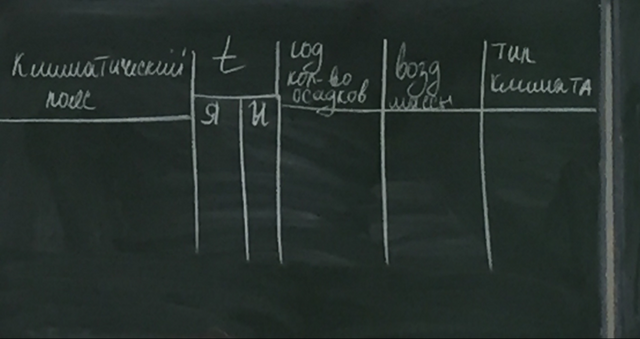 Климатический
пояс
t
Я И
год
кол-во
осадков
возд
массы
тип
климата